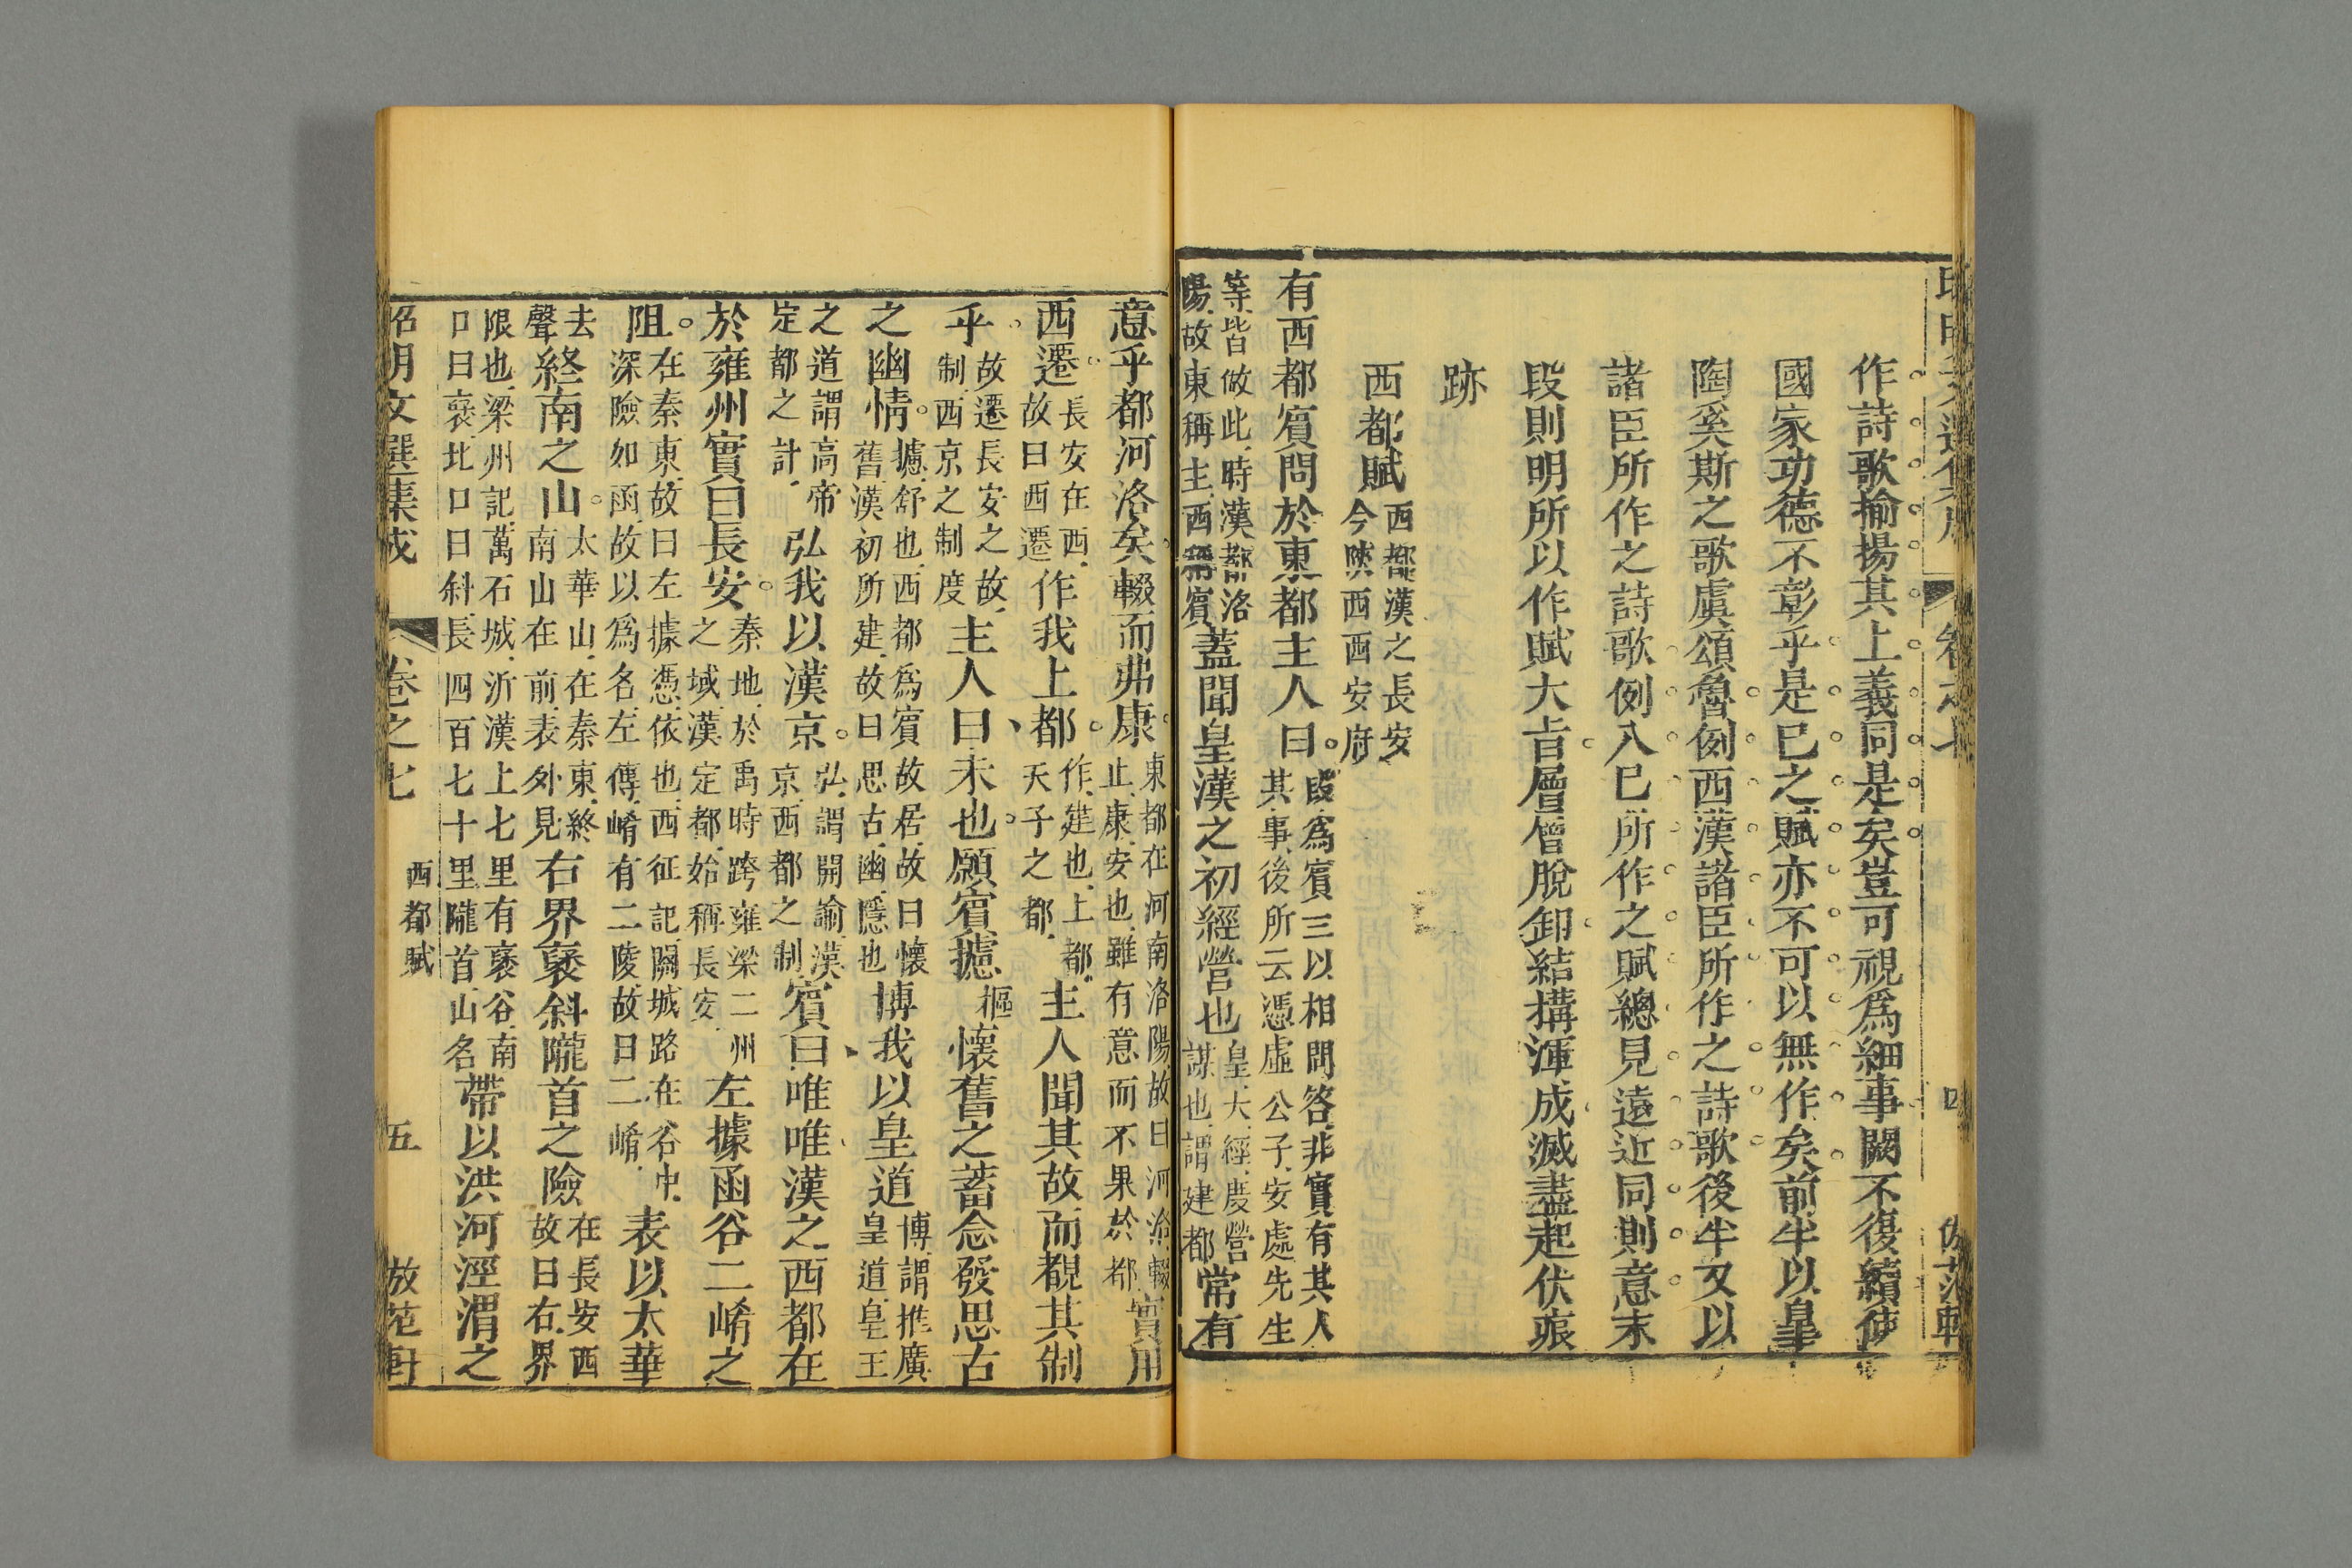 作詩歌揄揚其上義同是矣豈可視爲細事闕不復續使
國家功德不彰乎是已之賦亦不可以無作矣前半以皋
陶奚斯之歌虞頌魯例西漢諸臣所作之詩歌後半又以
諸臣所作之詩歌例入已所作之賦總見遠近同則意末
段則明所以作賦大旨層層脫卸結搆渾成滅盡起伏痕
跡
西都賦西都漢之長安今陜西西安府
有西都賓問於東都主人曰叚爲賓三以相問答非實有其人其事後所云憑虛公子安處先生
等皆倣此時漢都洛陽故東稱主西稱賓蓋聞皇漢之初經營也皇大經度營謀也謂建都常有
意乎都河洛矣輟而弗康東都在河南洛陽故曰河洛輟止康安也雖有意而不果於都實用
西遷長安在西故曰西遷作我上都作建也上都天子之都主人聞其故而覩其制
乎故遷長安之故制西京之制度主人曰未也願賓攄懷舊之蓄念發思古
之幽情攄舒也西都爲賓故居故曰懷舊漢初所建故曰思古幽隱也博我以皇道博謂推廣皇道皇王
之道謂高帝定都之計弘我以漢京弘謂開諭漢京西都之制賓曰唯唯漢之西都在
於雍州實曰長安秦地於禹時跨雍梁二州之域漢定都始稱長安左據函谷二崤之
阻在秦東故曰左據憑依也西征記關城路在谷中深險如函故以爲名左傳崤有二陵故曰二崤表以太華
去聲終南之山太華山在秦東終南山在前表外見右界褒斜隴首之險在長安西故曰右界
限也梁州記萬石城泝漢上七里有褒谷南口曰褒北口曰斜長四百七十里隴首山名帶以洪河涇渭之
昭明文選集成 卷之七 西都賦 五